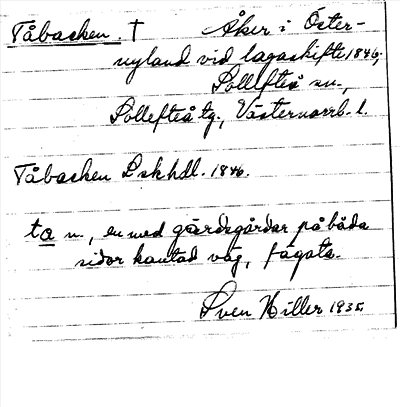 Tåbacken. † Åker i Öster-
nyland vid lagaskifte 1846,
Sollefteå sn.,
Sollefteå tg., Västernorrl. l.
Tåbacken Lskhdl. 1846.
ta n., en med gärdsgårdar på båda
sidor kantad väg, fägata.
Sven Hiller 1935